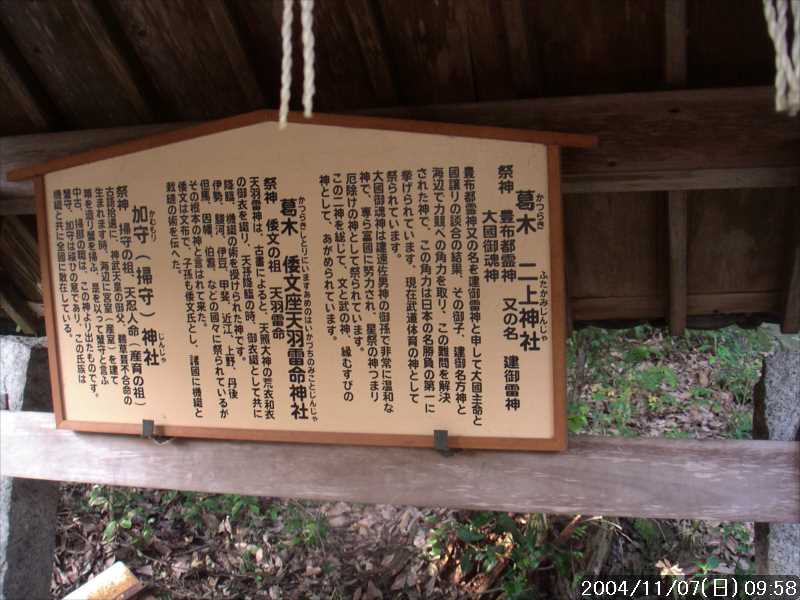 かつらき ふたかみじんじゃ
葛木 二上神社
祭神 豊布都霊神 又の名 建御雷神
大國御魂神
豊布都霊神又の名を建御雷神と申して大國主命と
國譲りの談合の結果、その御子、建御名方神と
海辺で力競べの角力を取り、この難問を解決
された神で、この角力は日本の名勝負の第一に
挙げられています。現在武道体育の神として
祭られています。
大國御魂神は建速佐男神の御孫で非常に温和な
神で、専ら富國に努力され、星祭の神つまり
厄除けの神として祭られています。
この二神を総じて、文と武の神、縁むすびの
神として、あがめられています。
かつらきしとりにいますあめのはいかづちのみことじんじゃ
葛木 倭文座天羽雷命神社
祭神 倭文の祖 天羽雷命
天羽雷命は、古書によると、天照大神の荒衣和衣
の御衣を織り、天孫降臨の時、御衣織として共に
降臨、機織の術を授けられた神です。
伊勢、駿河、伊豆、甲斐、近江、上野、丹後
但馬、因幡、伯耆、などの國々に祭られているが
その根本の神と言はれて来た。
倭文は文布で、子孫も倭文氏とし、諸國に機織と
裁縫の術を伝へた。
かもり じんじゃ
加守(掃守)神社
祭神 掃守の祖、天忍人命(産育の祖)
古語拾遺に、神武天皇の御父、鵜草葺不合命の
生まれます時、海辺に宮室(産室)を建てて
箒を造り蟹を掃ふ、是を以って蟹守と言ふ
中古、掃部の職は、この神より出たものです。
蟹守、加守は縁ひの意であり、この氏族は
機織と共に全國に散在している。
2004/11/07(日) 09:58